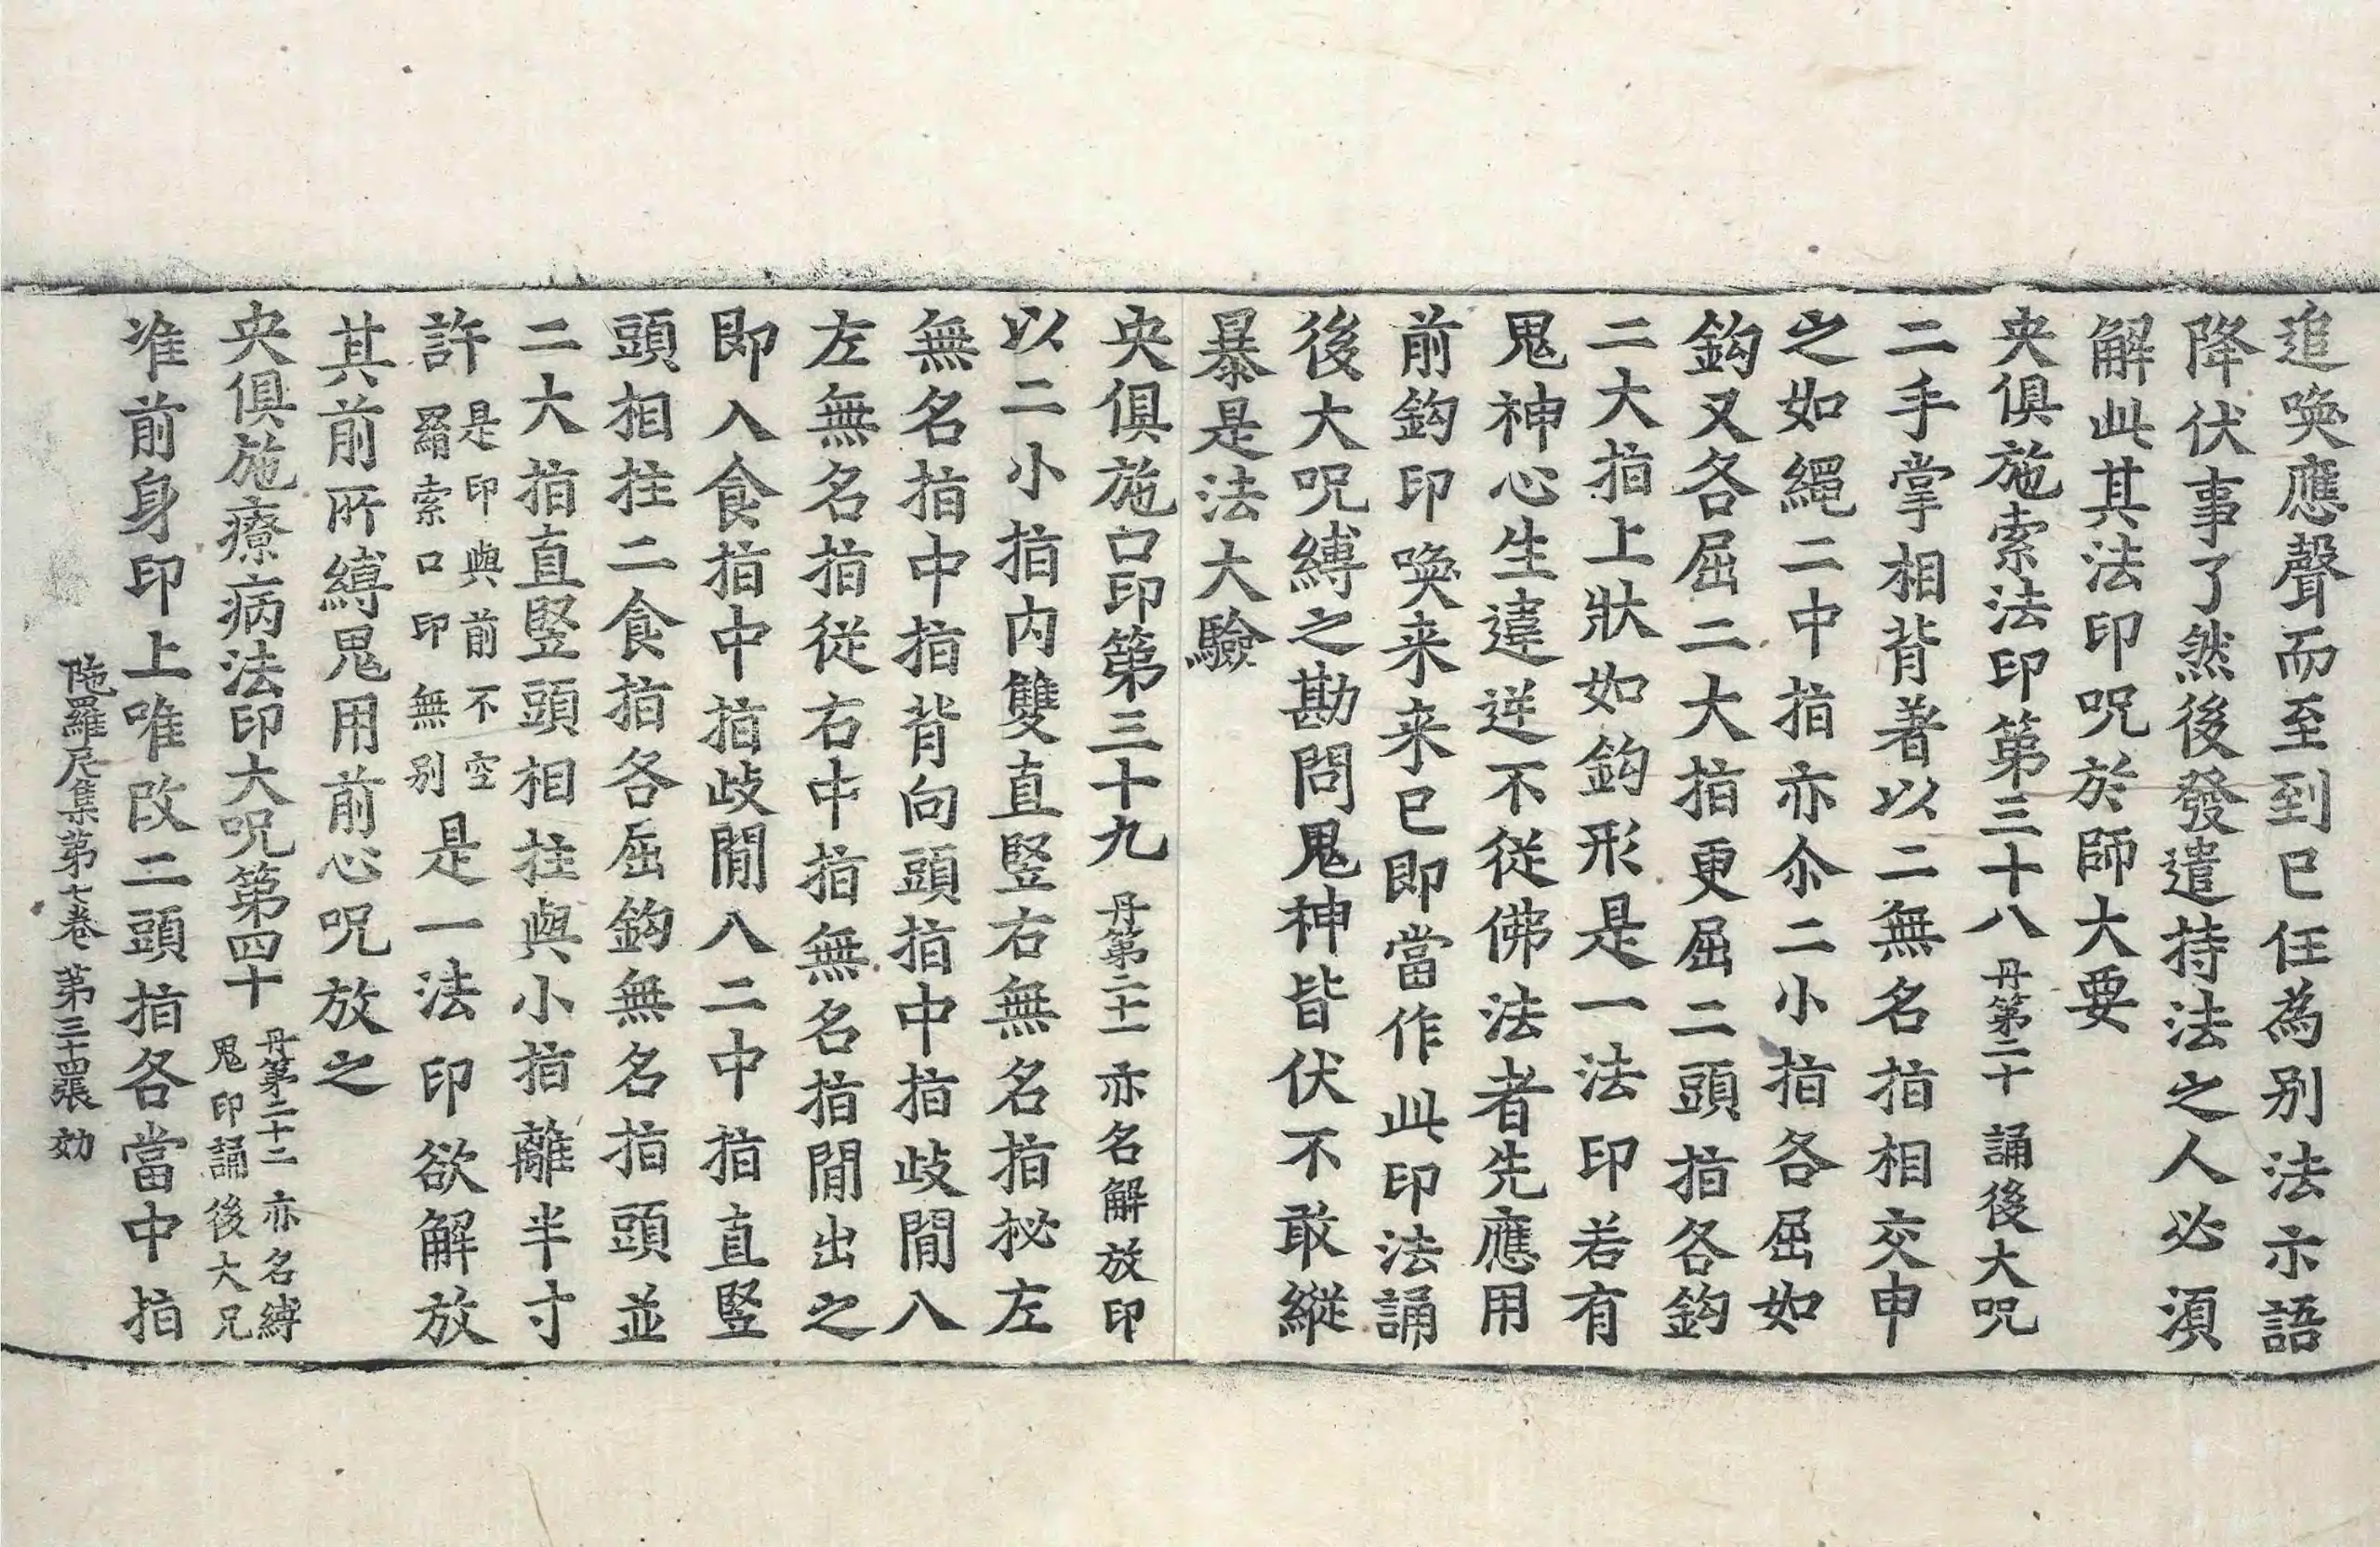 追喚應聲而至到已任為別法示語
降伏事了然後發遣持法之人必湏
解此其法印呪於師大要
央俱施索法印第三十八 丹第二十 誦後大呪
二手掌相背著以二無名指相交申
之如繩二中指亦尒二小指各屈如
鈎又各屈二大指更屈二頭指各鈎
二大指上狀如鈎形是一法印若有
鬼神心生違逆不從佛法者先應用
前鈎印喚来来已即當作此印法誦
後大呪縛之勘問鬼神皆伏不敢縱
暴是法大驗
央俱施口印第三十九 丹第二十一 亦名解放印
以二小指内雙直竪右無名指拟左
無名指中指背向頭指中指歧間入
左無名指從右中指無名指間出之
即入食指中指歧間八二中指直竪
頭相拄二食指各屈鈎無名指頭並
二大指直竪頭相拄與小指離半寸
許 是印與前不空
羂索口印無別 是一法印欲解放
其前所縛鬼用前心呪放之
央俱施療病法印大呪第四十 丹第二十二 亦名縛
鬼印誦後大呪
准前身印上唯改二頭指各當中指
陁羅尼集第七卷 第三十四張 効